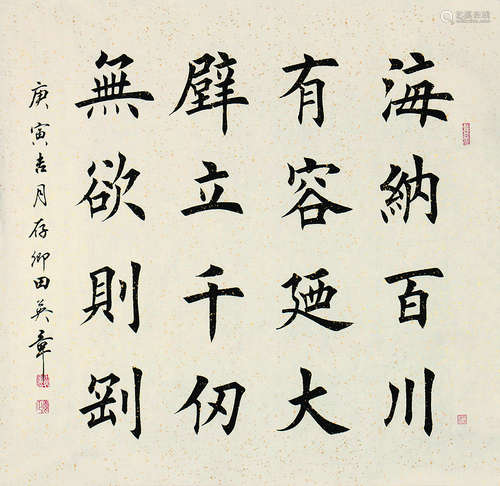 海納百川
有容廼大
壁立千仞
無欲則剛
庚寅吉月存卿田英章